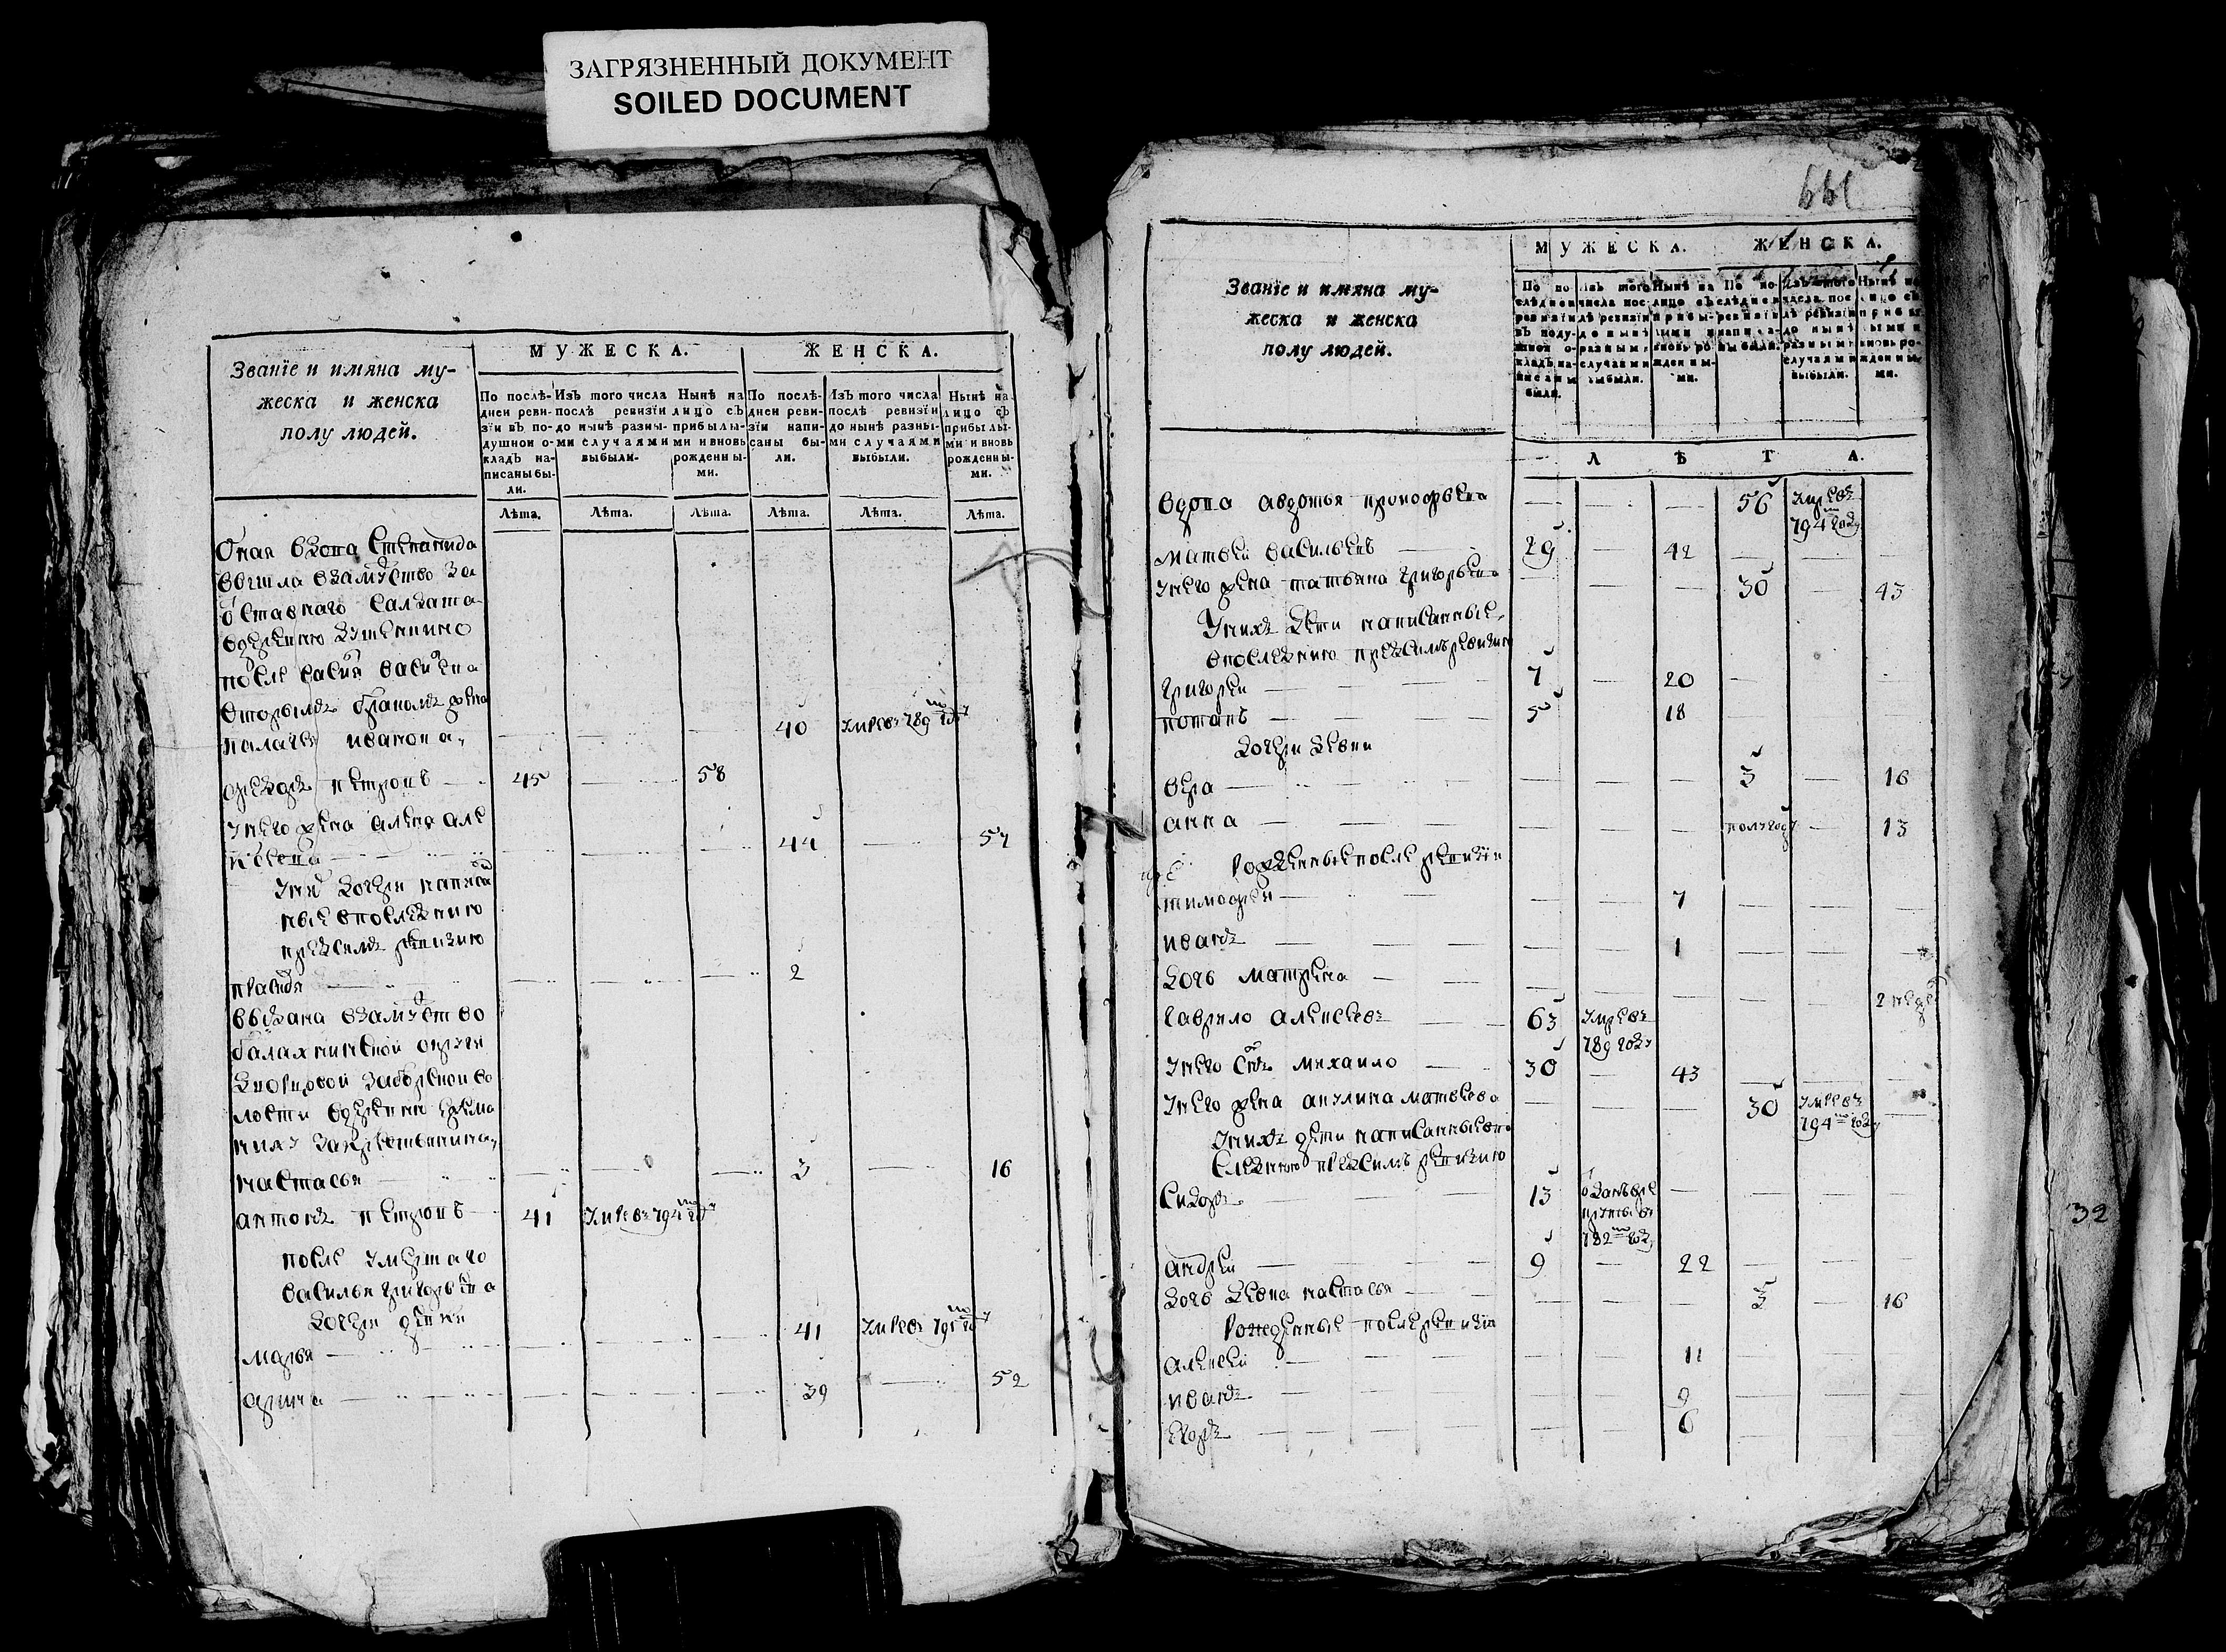 ЗАГРЯЗНЕННЫЙ ДОКУМЕНТ
SOILED DOCUMENT
Званїе и имяна му-
жеска и женска
полу людей.
МУЖЕСКА. ЖЕНСКА.
По послѣ-
дней реви-
зїи въ по-
душной о-
кладъ на-
писаны бы-
ли.
Изъ того числа
послѣ ревизїи
до нынѣ разны-
ми случаями
выбыли.
Нынѣ на
лицо съ
прибылы-
ми и вновь
рожденны-
ми.
По послѣ-
дней реви-
зїи напи-
саны бы-
ли.
Изъ того числа
послѣ ревизїи
до нынѣ разны-
ми случаями
выбыли.
Нынѣ на
лицо съ
прибылы-
ми и вновь
рожденны-
ми.
Лѣта. Лѣта. Лѣта. Лѣта. Лѣта. Лѣта.
Оная вдова степанида
вышла взамуство за
оставнаго салдата
после
вторымъ бракомъ жена
палагея иванова 40 умре въ 789 году
федоръ петровъ 45 58
унего жена
44 57
уних дочери написан
ные впоследнюю
предсимъ ревизию
2
выдана взамуство
балахнинской округи
волости
настасья 3 16
антонъ петровъ 41 умре въ 794 году
после умершаго
василья григорьева
дочери девки
марья 41 умре въ 795 году
арина 39 52
661
Званїе и имяна му-
жеска и женска
полу людей.
МУЖЕСКА. ЖЕНСКА.
По по-
слѣдней
ревизїи
въ поду-
шной о-
кладъ на-
писаны
были.
Изъ того
числа пос-
лѣ ревизїи
до нынѣ
разными
случаями
выбыли.
Нынѣ на
лицо съ
прибы-
лыми и
вновь ро-
жденны-
ми.
По по-
слѣдней
ревизїи
написа-
ны были.
Изъ того
числа пос-
лѣ ревизїи
до нынѣ
разными
случаями
выбыли.
Нынѣ на
лицо съ
прибы-
лыми и
вновь ро-
жденны-
ми.
Л Ѣ Т А.
вдова авдотья прокофьева 56 умре въ
794 году
матвей васильевъ 29 42
унего жена татьяна григорьева 30 43
унихъ дети написанные
впоследнюю предсимъ ревизию
григорей 7 20
потапъ 5 18
дочери девки
вера 3 16
анна полугоду 13
рожденные после ревизии
тимофей 7
иванъ 1
дочь матрена 2 недел
гаврило алексеевъ 63 умре въ
789 году
унего сынъ михаило 30 43
унего жена акулина матвеева 30 умре въ
794 году
унихъ дети написанные впо
следнюю предсимъ ревизию
сидоръ 13 озанъ в ре
круты въ
782 году
андрей 9 22
дочь девка настасья 3 16
рожденные после ревизии
алексей 11
иванъ 9
егоръ 6
32